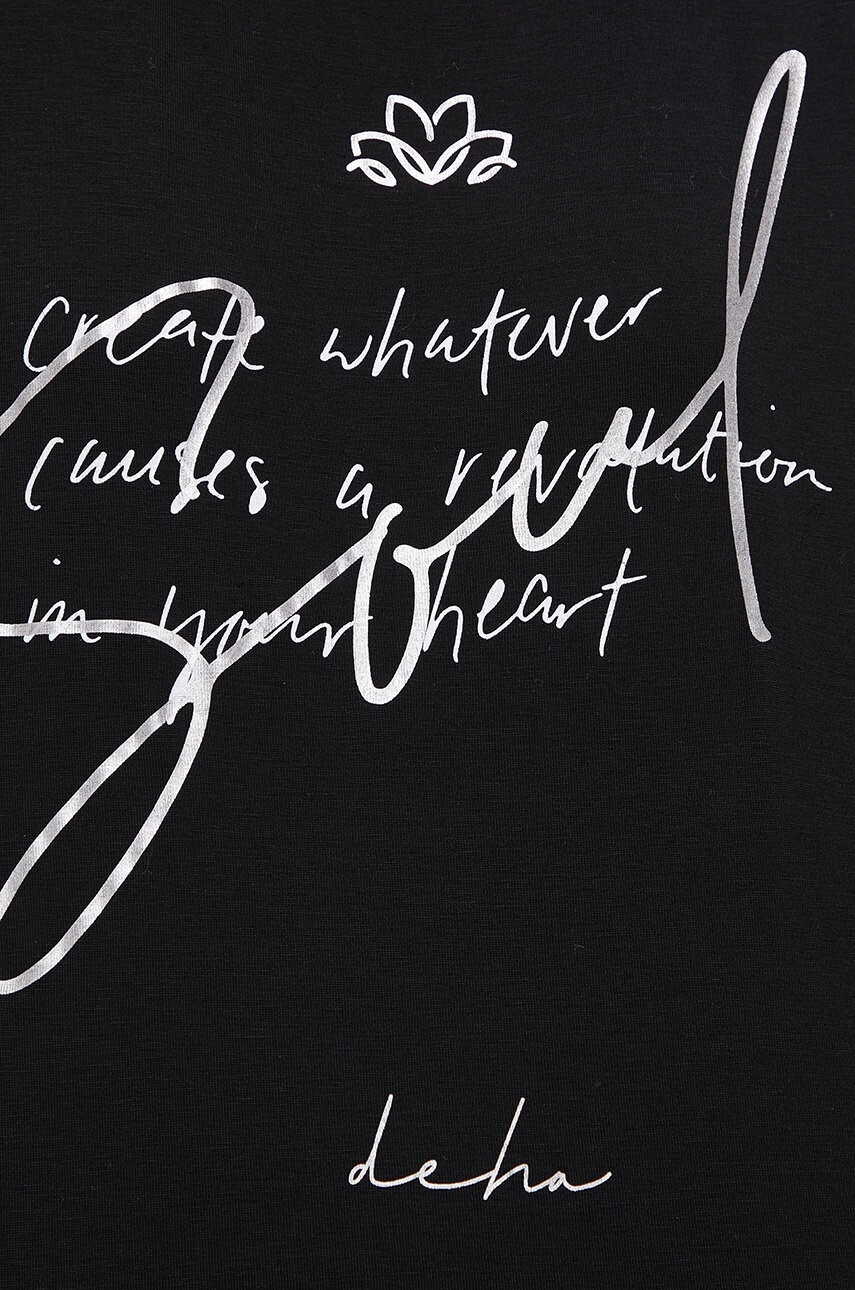 create whatever
causes a revolution
in your heart
Soul
deha